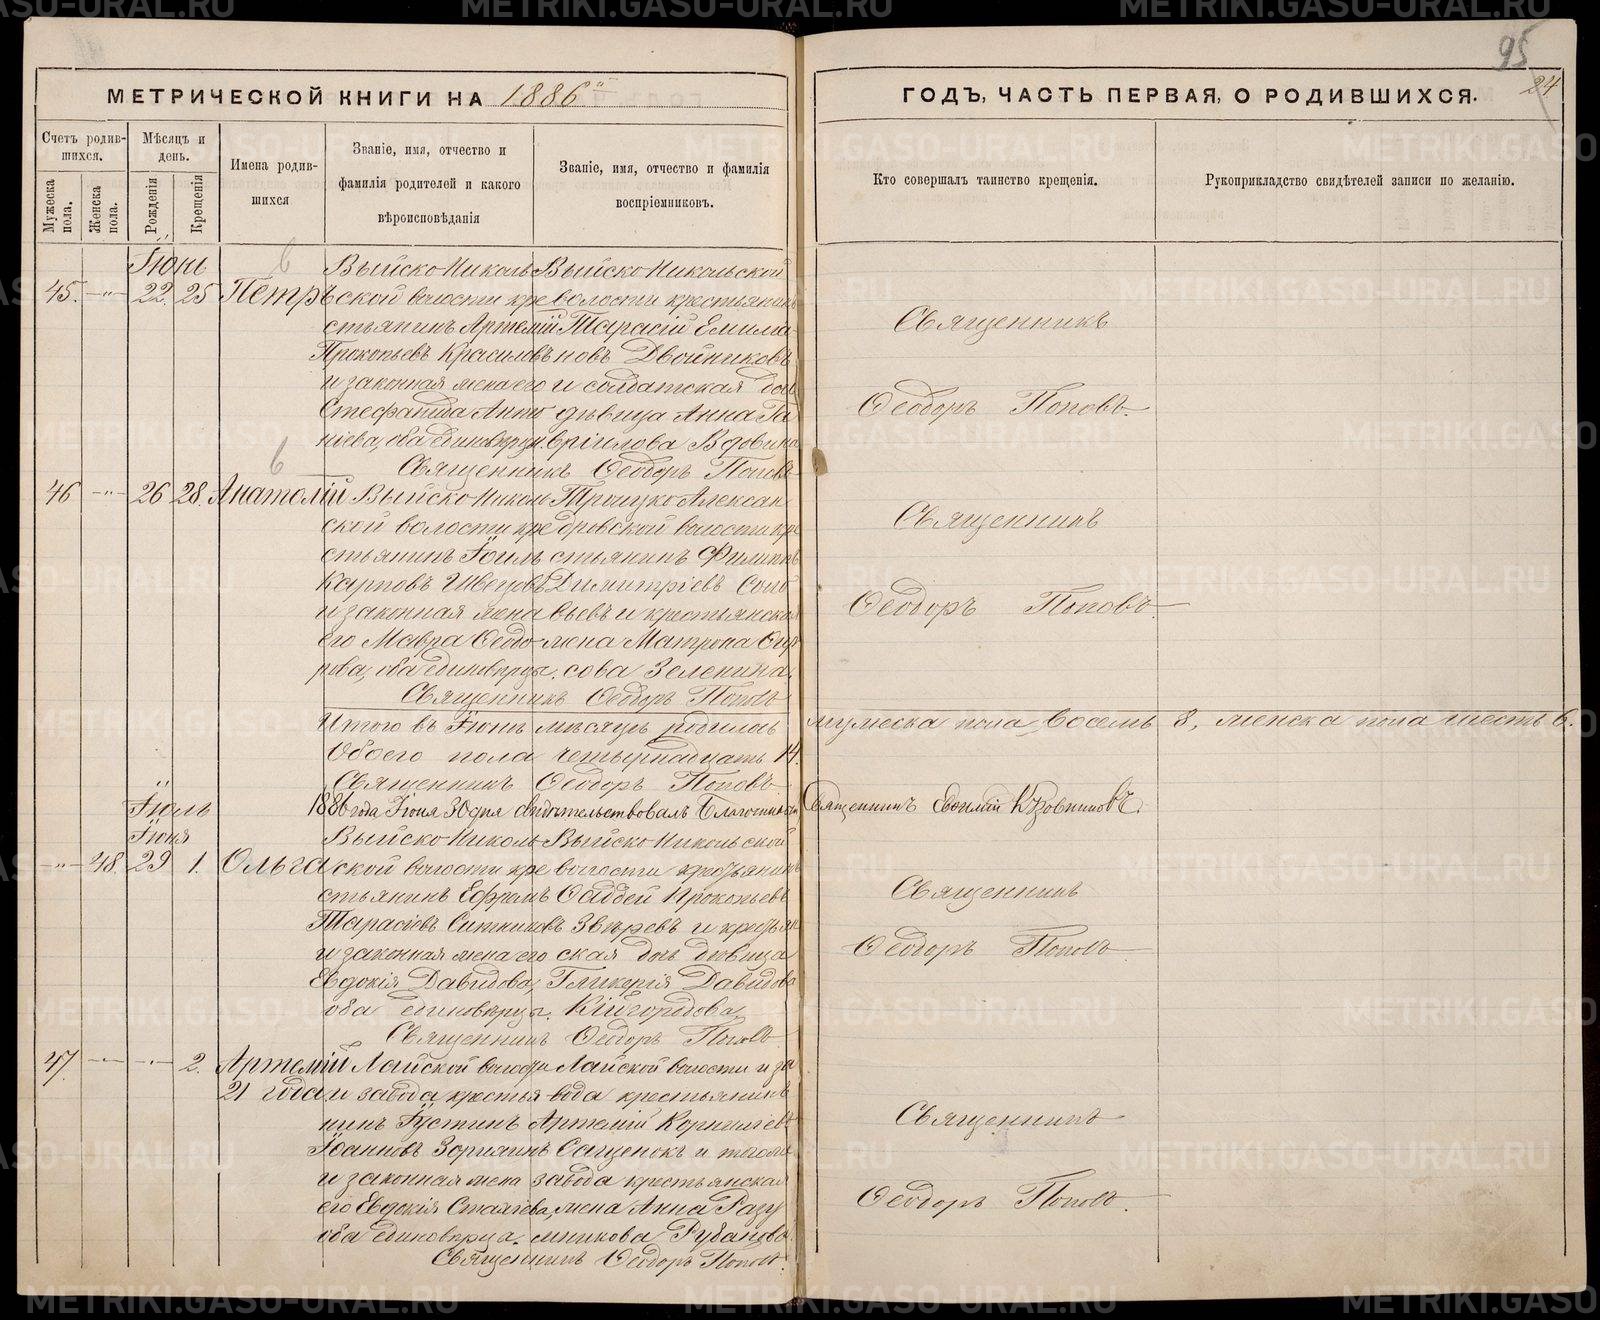 95
24
МЕТРИЧЕСКОЙ КНИГИ НА 1886й
ГОДЪ, ЧАСТЬ ПЕРВАЯ, О РОДИВШИХСЯ.
Счетъ родив-
шихся.
Мужеска
пола.
Женска
пола.
Мѣсяцъ и
день.
Рожденія
Крещенія
Имена родив-
шихся
Званіе, имя, отчество и
фамилія родителей и какого
вѣроисповѣданія
Званіе, имя, отчество и фамилія
воспріемниковъ.
Кто совершалъ таинство крещенія.
Рукоприкладство свидѣтелей записи по желанію.
Іюнь
6
45. -"- 22. 25 Петръ
Выйско-Николь-
ской волости кре
стьянинъ Артемій
Прокопьевъ Красиловъ
и законная жена его
Стефанида
оба единовѣрцы.
Выйско-Никольской
волости крестьянинъ
Тарасій Емилиа-
новъ Двойниковъ
и солдатская дочь
дѣвица Анна Га
вріилова Вдовина
Священникъ Ѳеодоръ Поповъ
Священникъ
Ѳеодоръ Поповъ.
6
46 -"- 26 28. Анатолій
Выйско-Николь
ской волости кре
стьянинъ Іоиль
Карповъ Швецовъ
и законная жена
его Мавра Ѳеодо-
рова, оба единовѣрцы.
Троицко-Алексан
дровской волости кре
стьянинъ Филиппъ
Димитріевъ Соло
вьевъ и крестьянская
жена Матрона
сова Зеленина.
Священникъ Ѳеодоръ Поповъ
Священникъ
Ѳеодоръ Поповъ.
Итого въ Іюнѣ мѣсяцѣ родилось мужеска пола восемь 8, женска пола шесть 6.
Обоего пола четырнадцать 14.
Священникъ Ѳеодоръ Поповъ
1886 года Іюня 30 дня свидѣтельствовалъ Благочинный Священникъ Евѳимій
Іюль
Іюня
-"- 48. 29 1. Ольга
Выйско-Николь-
ской волости кре
стьянинъ Ефремъ
Тарасіевъ Ситниковъ
и законная жена его
Евдокія Давидова,
оба единовѣрцы.
Выйско-Никольской
волости крестьянинъ
Ѳаддей Прокопьевъ
Звѣревъ и крестьян
ская дочь дѣвица
Гликерія Давидова
Кайгородова,
Священникъ Ѳеодоръ Поповъ
Священникъ
Ѳеодоръ Поповъ
47. -"- -"- 2. Артемій
21 года
Лайской волости
и завода крестья-
нинъ Іустинъ
Іоанновъ Зорихинъ
и законная жена
его Евдокія
оба единовѣрца.
Лайской волости и за
вода крестьянинъ
Артемій Корниліевъ
Сащенокъ и тогоже
завода крестьянская
жена Анна Разу
мникова Рубанцова
Священникъ Ѳеодоръ Поповъ.
Священникъ
Ѳеодоръ Поповъ.
METRIKI.GASO-URAL.RU